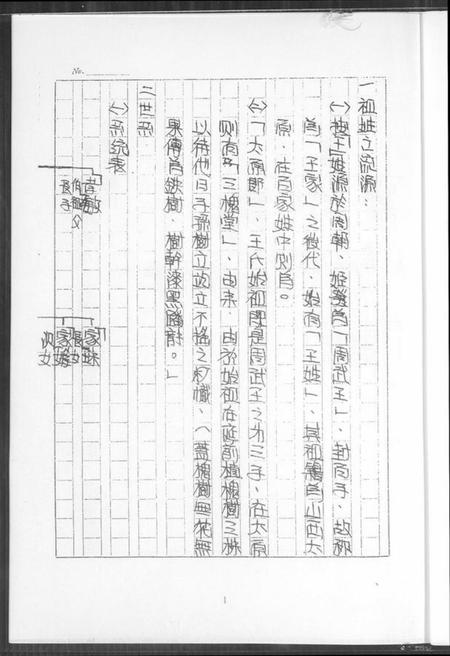 No.
一祖姓之流源：
(一)按王姓源於周朝、姬發為「周武王」、封同子、故稱
為「王家」之後代、始有「王姓」、其祖籍為山西太
原、在百家姓中則為。
(二)「太原郡」、王氏始祖即是周武王之才三子、在太原
則有「三槐堂」、由來、由於始祖在庭前植槐樹三株
以待他日子孫樹立屹立不搖之、(蓋槐樹無花無
果傳為鉄樹、樹幹漆黑。」
二世系
(一)系統表
長子
次女
長女
1